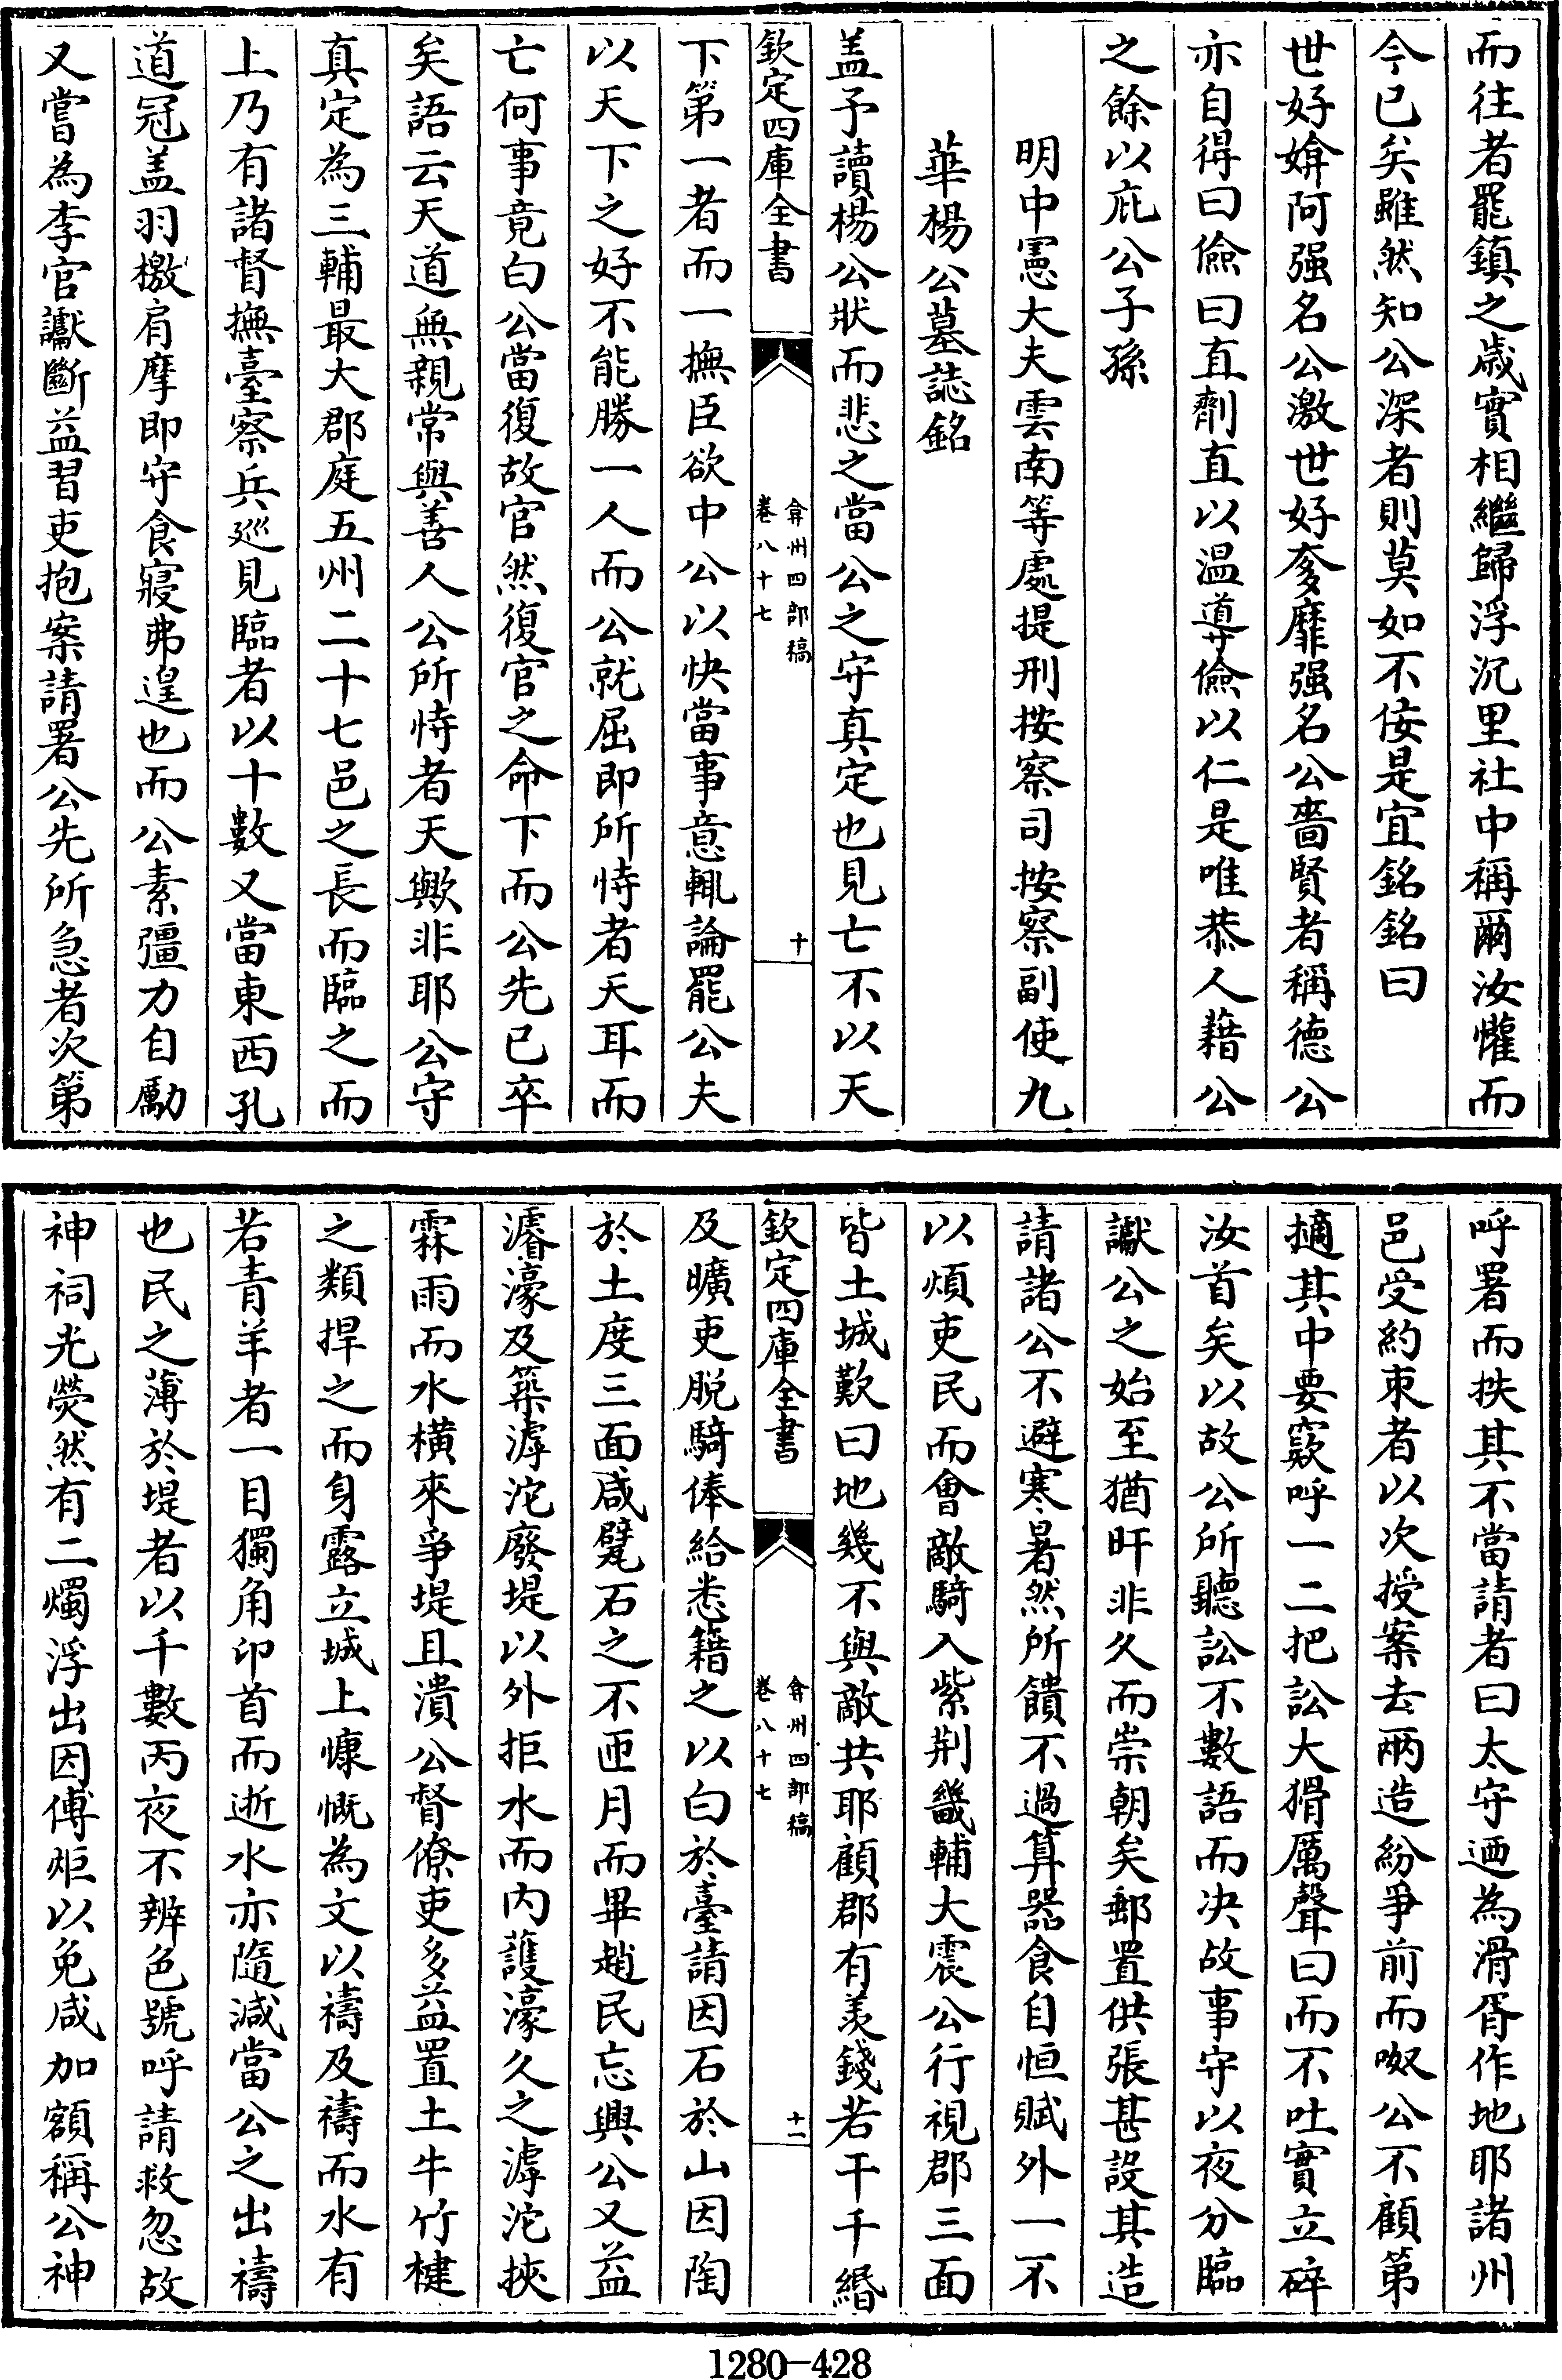 而往者罷鎮之歲實相繼歸浮沉里社中稱爾汝懽而
今已矣雖然知公深者則莫如不佞是宜銘銘曰
世好媕阿强名公激世好奓靡强名公嗇賢者稱德公
亦自得曰儉曰直劑直以温導儉以仁是唯恭人藉公
之餘以庇公子孫
明中憲大夫雲南等處提刑按察司按察副使九
華楊公墓誌銘
盖予讀楊公狀而悲之當公之守真定也見亡不以天
欽定四庫全書
弇州四部稿
卷八十七
十
下第一者而一撫臣欲中公以快當事意輒論罷公夫
以天下之好不能勝一人而公就屈即所恃者天耳而
亡何事竟白公當復故官然復官之命下而公先已卒
矣語云天道無親常與善人公所恃者天歟非耶公守
真定為三輔最大郡庭五州二十七邑之長而臨之而
上乃有諸督撫臺察兵廵見臨者以十數又當東西孔
道冠盖羽檄肩摩即守食寢弗遑也而公素彊力自勵
又嘗為李官讞斷益習吏抱案請署公先所急者次第
呼署而抶其不當請者曰太守迺為滑胥作地耶諸州
邑受約束者以次授案去兩造紛爭前而呶公不顧第
擿其中要窾呼一二把訟大猾厲聲曰而不吐實立碎
汝首矣以故公所聽訟不數語而决故事守以夜分臨
讞公之始至猶旰非久而崇朝矣郵置供張甚設其造
請諸公不避寒暑然所饋不過算器食自恒賦外一不
以煩吏民而會敵騎入紫荆畿輔大震公行視郡三面
皆土城歎曰地幾不與敵共耶顧郡有羨錢若干千緡
欽定四庫全書
弇州四部稿
卷八十七
十一
及曠吏脱騎俸給悉籍之以白於臺請因石於山因陶
於土度三面咸甓石之不匝月而畢趙民忘興公又益
濬濠及築滹沱廢堤以外拒水而内護濠久之滹沱挾
霖雨而水横來爭堤且潰公督僚吏多益置土牛竹楗
之類捍之而身露立城上慷慨為文以禱及禱而水有
若青羊者一目獨角卬首而逝水亦隨減當公之出禱
也民之薄於堤者以千數丙夜不辨色號呼請救忽故
神祠光熒然有二燭浮出因傅炬以免咸加額稱公神
1280-428